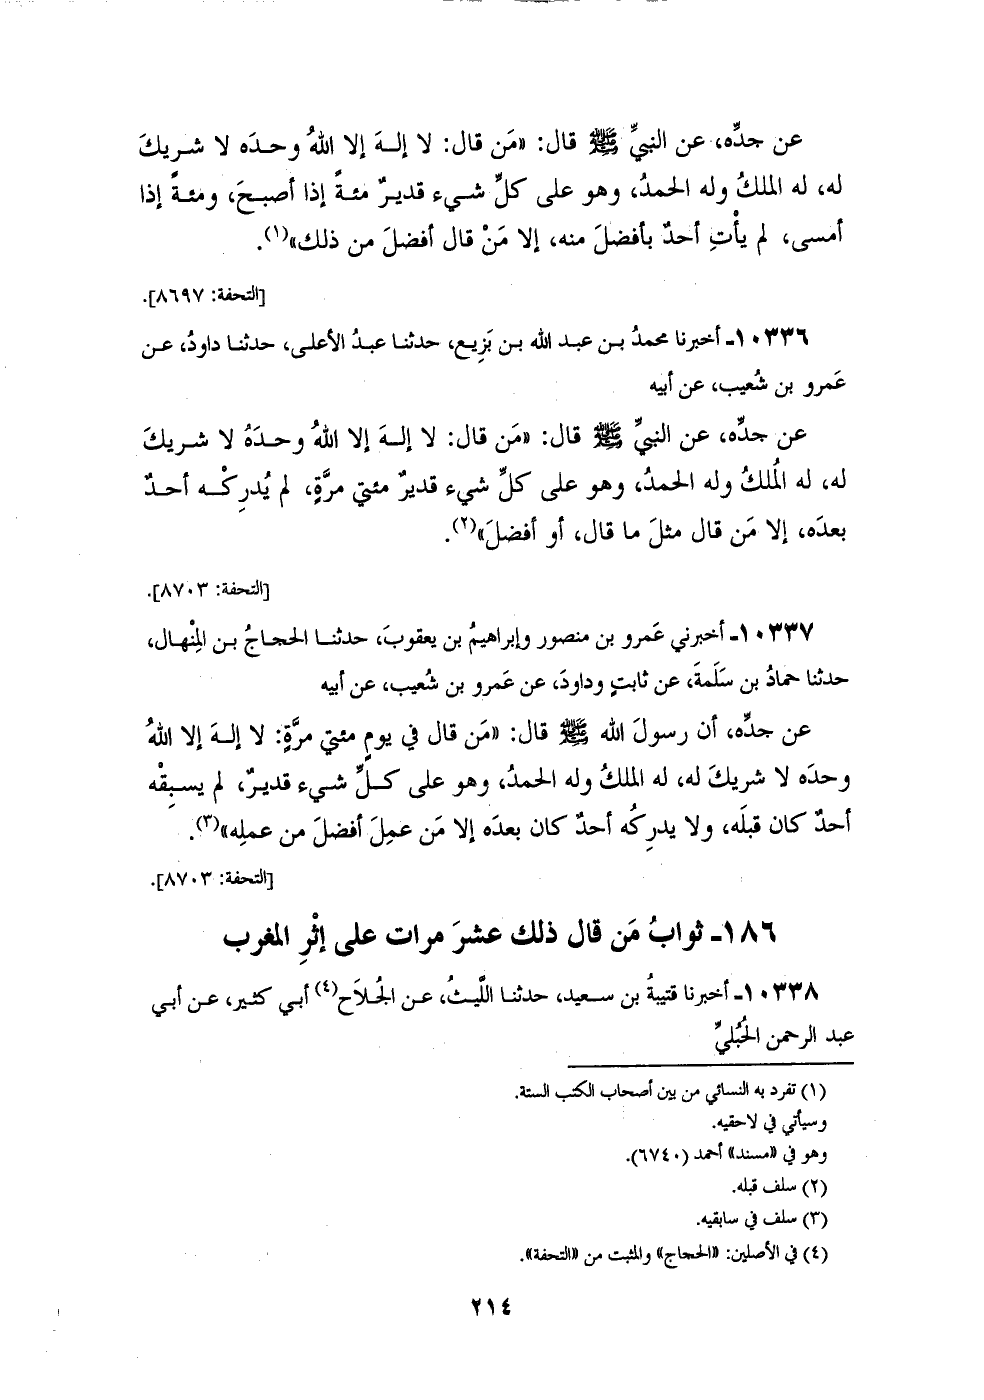 عن جدِّه، عن النبيِّ ﷺ قال: «مَن قال: لا إلـهَ إلا اللهُ وحـدَه لا شـريكَ
له، له الملكُ وله الحمدُ، وهو على كلِّ شيء قديرٌ مئـةً إذا أصبـحَ، ومئـةً إذا
أمسى، لم يأْتِ أحدٌ بأفضلَ منه، إلا مَنْ قال أفضلَ من ذلك»(١).
[التحفة: ٨٦٩٧].
١٠٣٣٦ـ أخبرنا محمدُ بـن عبـد الله بن بَزِيع، حدثنـا عبدُ الأعلـى، حدثنـا داودُ، عـن
عَمرو بن شُعيب، عن أبيه
عن جدِّه، عن النبيِّ ﷺ قال: «مَن قال: لا إلـهَ إلا اللهُ وحـدَهُ لا شـريكَ
له، له المُلكُ وله الحمدُ، وهو على كلِّ شيء قديرٌ مئتي مرَّةٍ، لم يُدرِكْـه أحـدٌ
بعدَه، إلا مَن قال مثلَ ما قال، أو أفضلَ»(٢).
[التحفة: ٨٧٠٣].
١٠٣٣٧ـ أخبرني عَمرو بن منصور وإبراهيمُ بن يعقوبَ، حدثنـا الحجـاجُ بـن المِنْهال،
حدثنا حمادُ بن سَلَمةَ، عن ثابتٍ وداودَ، عن عَمرو بن شُعيب، عن أبيه
عن جدِّه، أن رسولَ الله ﷺ قال: «مَن قال في يومٍ مئتي مرَّةٍ: لا إلـهَ إلا اللهُ
وحدَه لا شريكَ له، له الملكُ وله الحمدُ، وهو على كـلِّ شـيء قديـرٌ، لم يسـبِقْه
أحدٌ كان قبلَه، ولا يدرِكُه أحدٌ كان بعدَه إلا مَن عمِلَ أفضلَ من عملِه»(٣).
[التحفة: ٨٧٠٣].
١٨٦ـ ثوابُ مَن قال ذلك عشرَ مرات على إثْرِ المغرب
١٠٣٣٨ـ أخبرنا قتيبةُ بن سـعيد، حدثنـا اللَّيـثُ، عـن الجُـلاَح(٤) أبـي كثـير، عـن أبـي
عبد الرحمن الحُبُليِّ
(١) تفرد به النسائي من بين أصحاب الكتب الستة.
وسيأتي في لاحقيه.
وهو في «مسند» أحمد (٦٧٤٠).
(٢) سلف قبله.
(٣) سلف في سابقيه.
(٤) في الأصلين: «الحجاج» والمثبت من «التحفة».
٢١٤